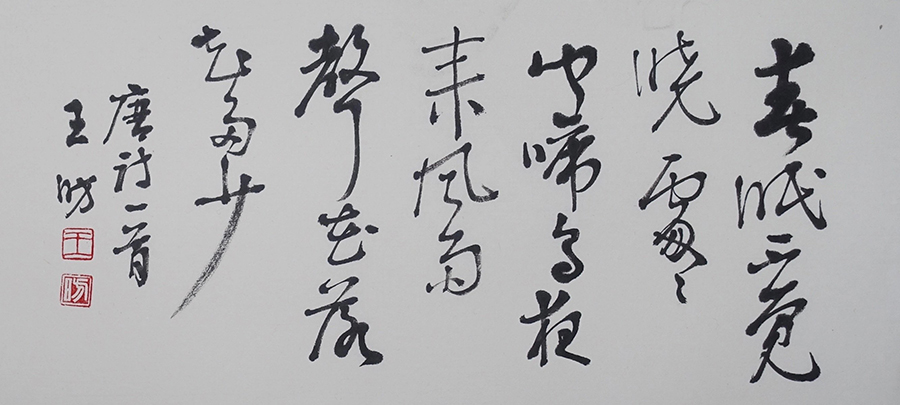 春眠不覺
曉處々
聞啼鳥夜
來風雨
聲花落
知多少
唐詩一首
王
王